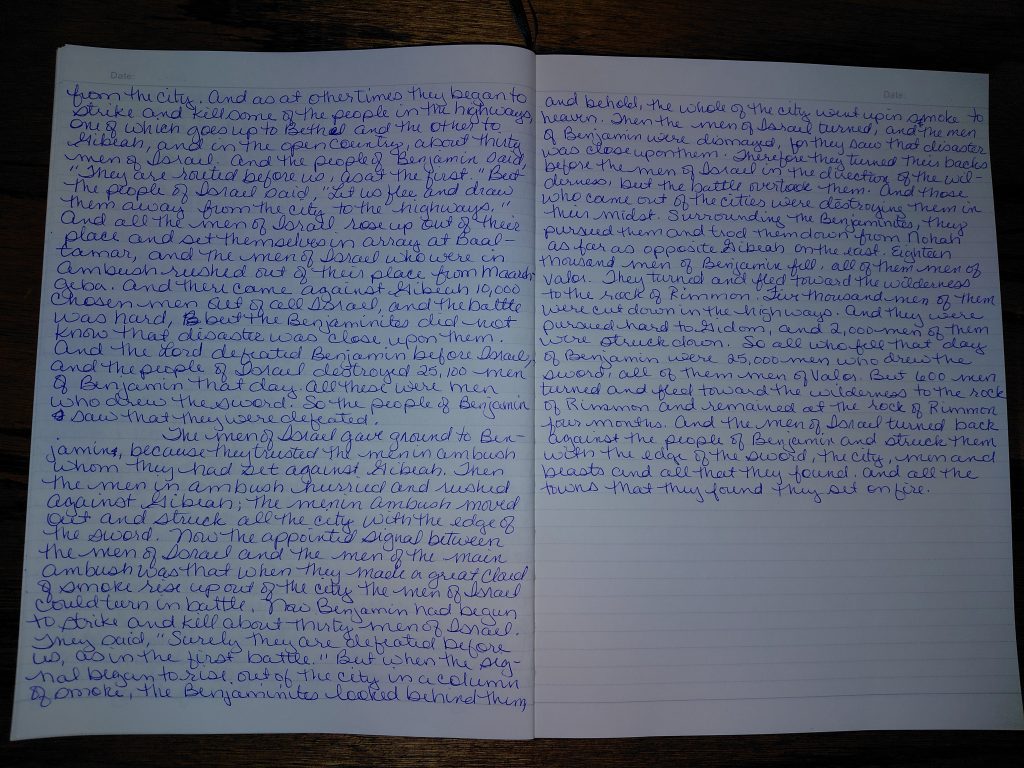 Date:
from the city. And as at other times they began to
strike and kill some of the people in the highways,
one of which goes up to Bethel and the other to
Gibeah, and in the open country, about thirty
men of Israel. And the people of Benjamin said,
"They are routed before us, as at the first." But
the people of Israel said, "Let us flee and draw
them away from the city to the highways."
And all the men of Israel rose up out of their
place and set themselves in array at Baal-
tamar, and the men of Israel who were in
ambush rushed out of their place from Maareh-
geba. And there came against Gibeah 10,000
chosen men out of all Israel, and the battle
was hard, but the Benjaminites did not
know that disaster was close upon them.
And the Lord defeated Benjamin before Israel,
and the people of Israel destroyed 25,100 men
of Benjamin that day. All these were men
who drew the sword. So the people of Benjamin
saw that they were defeated.
The men of Israel gave ground to Ben-
jamin, because they trusted the men in ambush
whom they had set against Gibeah. Then
the men in ambush hurried and rushed
against Gibeah; the men in ambush moved
out and struck all the city with the edge of
the sword. Now the appointed signal between
the men of Israel and the men of the main
ambush was that when they made a great cloud
of smoke rise up out of the city the men of Israel
could turn in battle. Now Benjamin had begun
to strike and kill about thirty men of Israel.
They said, "Surely they are defeated before
us, as in the first battle." But when the sig-
nal began to rise out of the city in a column
of smoke, the Benjaminites looked behind them,
Date:
and behold, the whole of the city went up in smoke to
heavn. Then the men of Israel turned, and the men
of Benjamin were dismayed, for they saw that disaster
was close upon them. Therefore they turned their backs
before the men of Israel in the direction of the wil-
derness, but the battle overtook them. And those
who came out of the cities were destroying them in
their midst. Surrounding the Benjaminites, they
pursued them and trod them down from Nohah
as far as opposite Gibeah on the east. Eighteen
thousand men of Benjamin fell, all of them men of
valor. They turned and fled toward the wilderness
to the rock of Rimmon. Five thousand men of them
were cut down in the highways. And they were
pursued hard to Gidom, and 2,000 men of them
were struck down. So all who fell that day
of Benjamin were 25,000 men who drew the
sword, all of them men of valor. But 600 men
turned and fled toward the wilderness to the rock
of Rimmon and remained at the rock of Rimmon
four months. And the men of Israel turned back
against the people of Benjamin and struck them
with the edge of the sword, the city, men and
beasts and all that they found. And all the
towns that they found they set on fire.